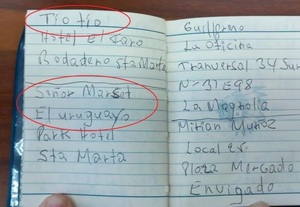 Tio tio
Hotel El Faro
Rodadero Sta Marta
Señor Marset
El uruguayo
Park Hotel
Sta Marta
Guillermo
La Oficina
Tranversal 34 Sur
N-31E98
La Magnolia
Mirian Muñoz
Local
Plaza Mercado
Envigado